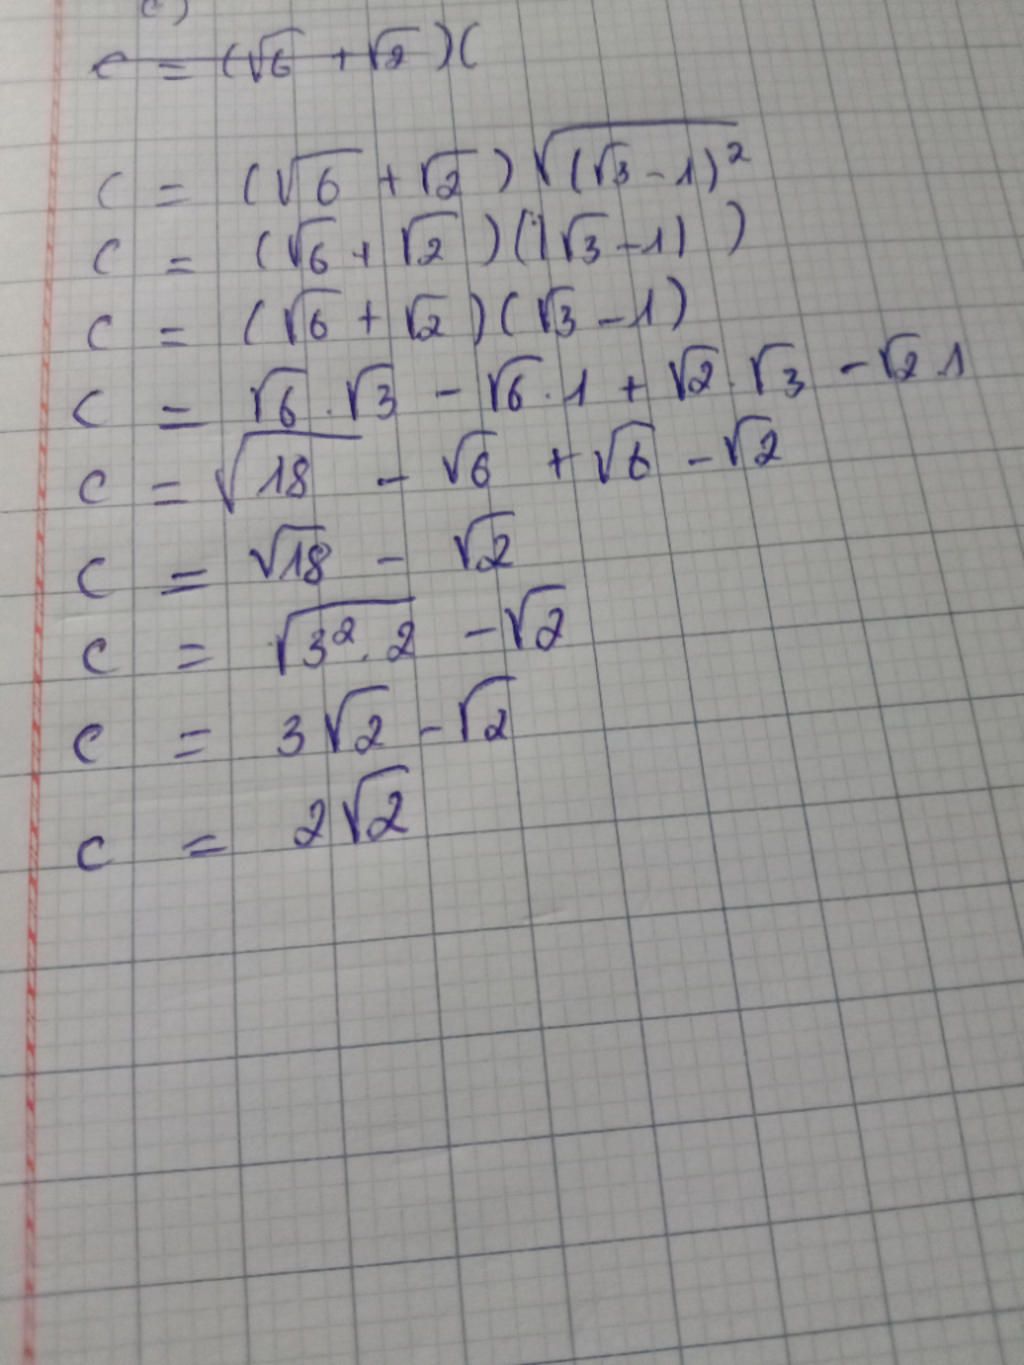 c)
C = (√6 + √2)(
C = (√6 + √2) √((√3 - 1)²)
C = (√6 + √2)(|√3 - 1|)
C = (√6 + √2)(√3 - 1)
C = √6 . √3 - √6 . 1 + √2 . √3 - √2 . 1
C = √18 - √6 + √6 - √2
C = √18 - √2
C = √(3² . 2) - √2
C = 3√2 - √2
C = 2√2